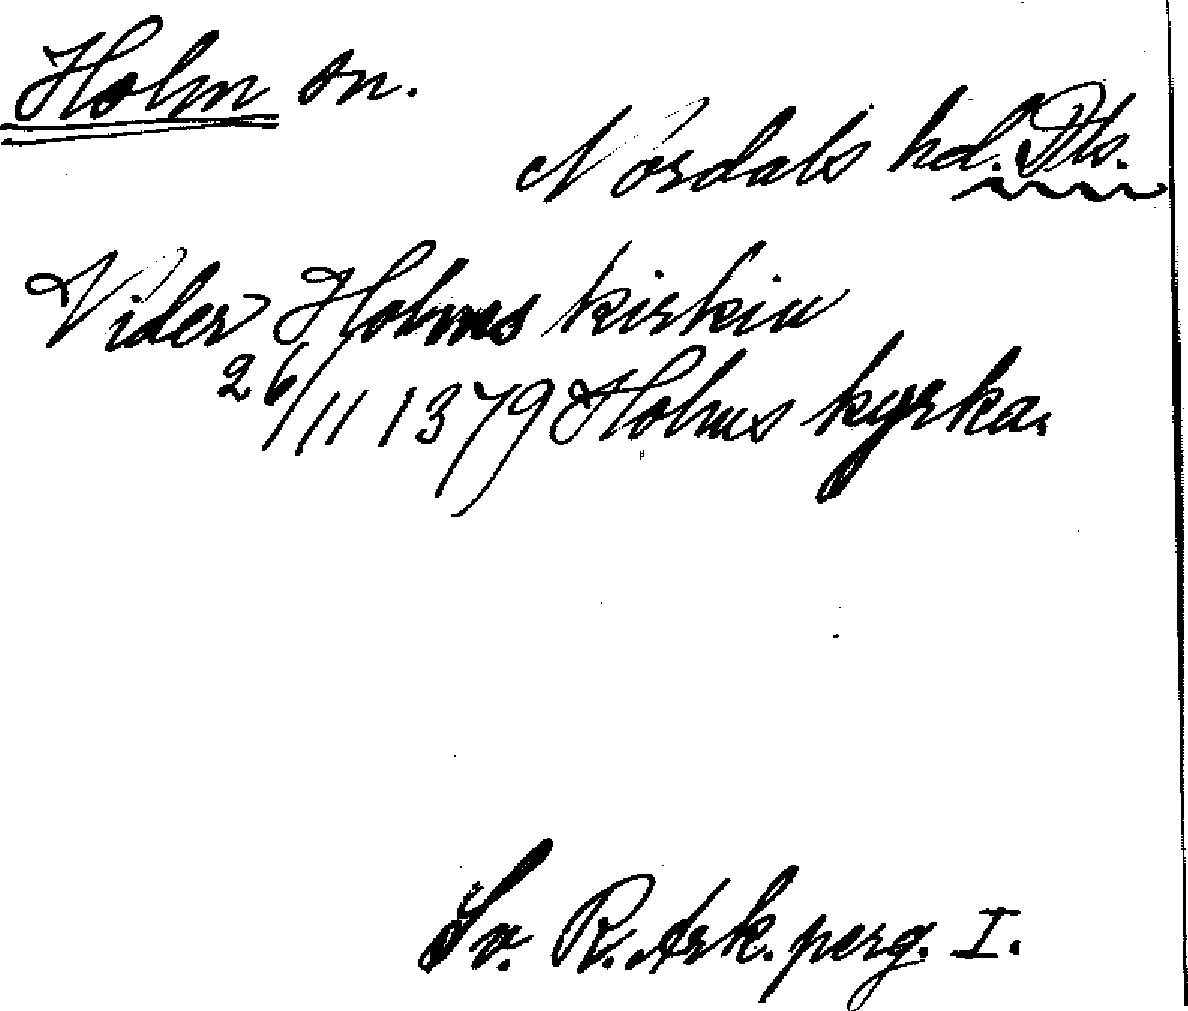 Holm sn.
Nordals hd. Dls.
Vider Holms kirkiu
26/11 1379 Holms kyrka.
Sv. R. Ark. perg. I.